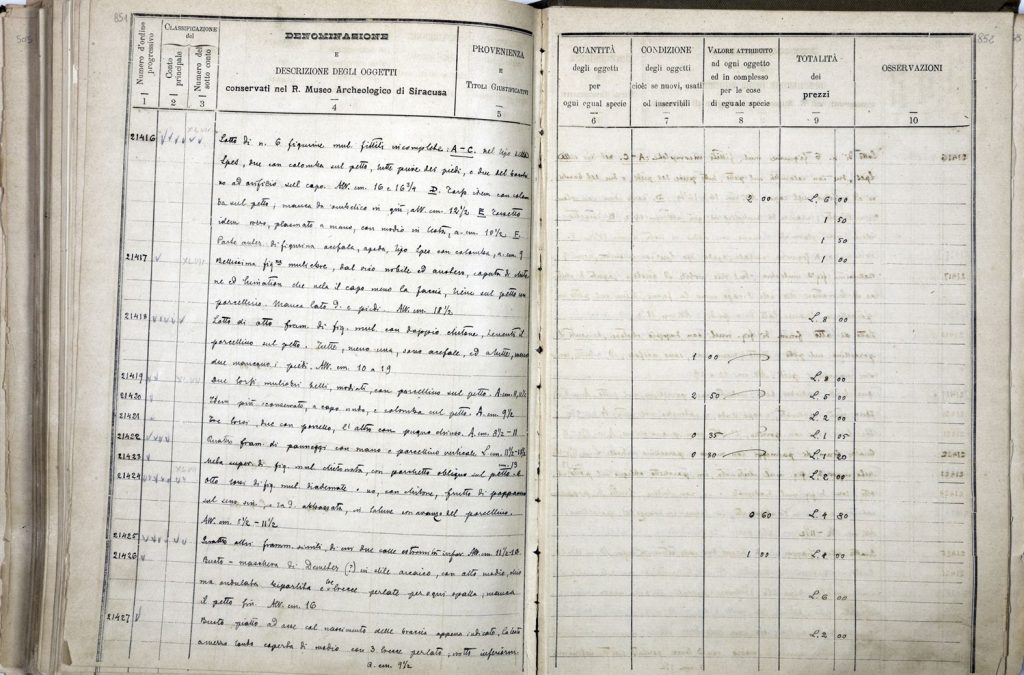 851
CLASSIFICAZIONE
del
Numero d'ordine progressivo
Conto principale
Numero del sotto conto
DENOMINAZIONE
E
DESCRIZIONE DEGLI OGGETTI
conservati nel R. Museo Archeologico di Siracusa
PROVENIENZA
E
TITOLI GIUSTIFICATIVI
1 2 3 4 5
21416 Lotto di n. 6 figurine mul. fittili incomplete: A-C. nel tipo
Spes, due con colomba sul petto, tutte prive dei piedi, e due
sul capo. Alt. cm. 16 e 16 3/4 D. idem con
sul petto, manca da in giù, alt. cm. 12 1/2 E.
idem, plasmato a mano, con modio in testa, a. cm. 10 1/2 F.
Parte di figurina acefala, tipo Spes con colomba, a. cm. 9
21417 Bellissima fig. muliebre, dal viso nobile ed austero, coperta di
ed himation che vela il capo meno la faccia, tiene sul petto un
porcellino. Manca lato D. e piedi. Alt. cm. 18 1/2
21418 Lotto di otto fram. di fig. mul. con doppio chitone, tenenti il
porcellino sul petto. Tutte, meno una, sono acefale, ed a tutte, meno
due mancano i piedi. Alt. cm. 10 a 19
21419 Due torsi muliebri belli, modiati, con porcellino sul petto. A. cm.
21420 Idem più conservato, a capo nudo, e colomba sul petto. A. cm. 9 1/2
21421 Tre torsi, due con porcello, l'altro con pugno chiuso. A. cm. 8 1/2 - 11
21422 Quattro fram. di panneggi con mano e porcellino verticale L. cm.
21423 Metà super. di fig. mul. chitonata, con porchetto obliquo sul petto.
13
21424 Otto torsi di fig. mul. diademate e no, con chitone, frutto di
sul seno e in talune con avanzo del porcellino.
Alt. cm. 8 1/2 - 11 1/2
21425 Quattro altri framm. simili, di cui due colle estremità infer. Alt. cm. 11 1/2 - 16
21426 Busto - maschera di Demeter (?) in stile arcaico, con alto modio,
ma ondulata ripartita e tre trecce perlate per ogni spalla, manca
il petto Alt. cm. 16
21427 Busto piatto ad col nascimento delle braccia appena indicato, la testa
coperta di modio con 3 trecce perlate, rotto inferiorm.
a. cm. 9 1/2
852
QUANTITÀ
degli oggetti
per
ogni egual specie
CONDIZIONE
degli oggetti
cioè: se nuovi, usati
od inservibili
VALORE ATTRIBUITO
ad ogni oggetto
ed in complesso
per le cose
di eguale specie
TOTALITÀ
dei
prezzi
OSSERVAZIONI
6 7 8 9 10
2 00 L. 6 00
1 50
1 50
1 00
L. 8 00
1 00 L. 8 00
2 50 L. 5 00
L. 2 00
0 35 L. 1 05
0 30 L. 1 20
L. 2 00
0 60 L. 4 80
1 00 L. 4 00
L. 6 00
L. 2 00